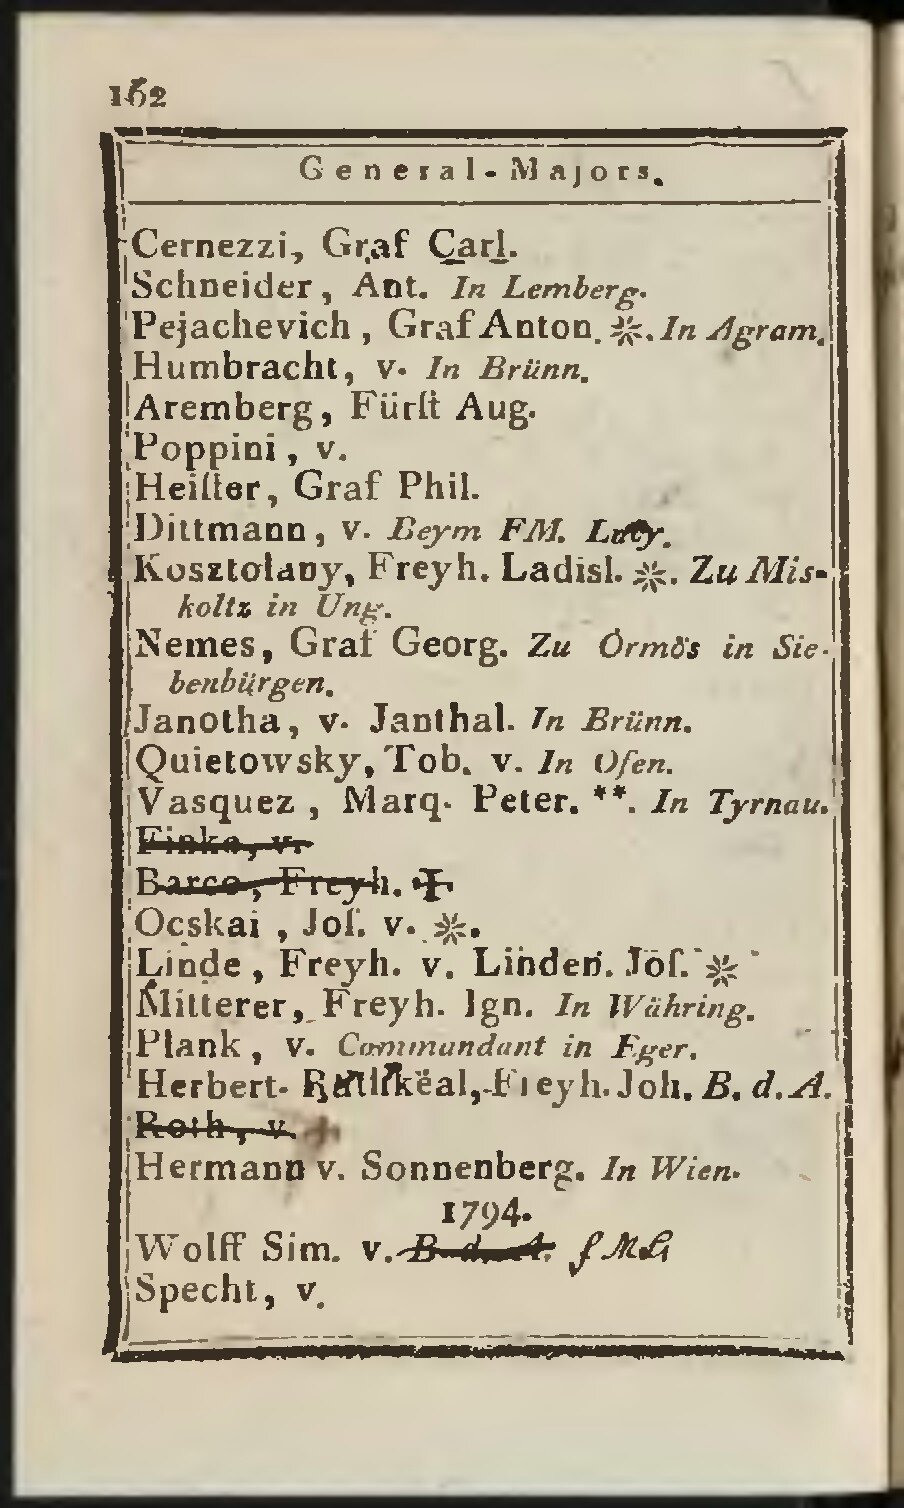 162
General-Majors.
Cernezzi, Graf Carl.
Schneider, Ant. In Lemberg.
Pejachevich, Graf Anton. ※. In Agram.
Humbracht, v. In Brünn.
Aremberg, Fürſt Aug.
Poppini, v.
Heiſter, Graf Phil.
Dittmann, v. Beym FM. Lacy.
Kosztolany, Freyh. Ladisl. ※. Zu Mis-
koltz in Ung.
Nemes, Graf Georg. Zu Örmös in Sie-
benbürgen.
Janotha, v. Janthal. In Brünn.
Quietowsky, Tob. v. In Ofen.
Vasquez, Marq. Peter. **. In Tyrnau.
Finke, v.
Barco, Freyh. ✠
Ocskai, Joſ. v. ※.
Linde, Freyh. v. Linden. Joſ. ※
Mitterer, Freyh. Ign. In Währing.
Plank, v. Commandant in Eger.
Herbert- Freyh. Joh. B. d. A.
Roth, v. +
Hermann v. Sonnenberg. In Wien.
1794.
Wolff Sim. v. B. d. A. f M L
Specht, v.